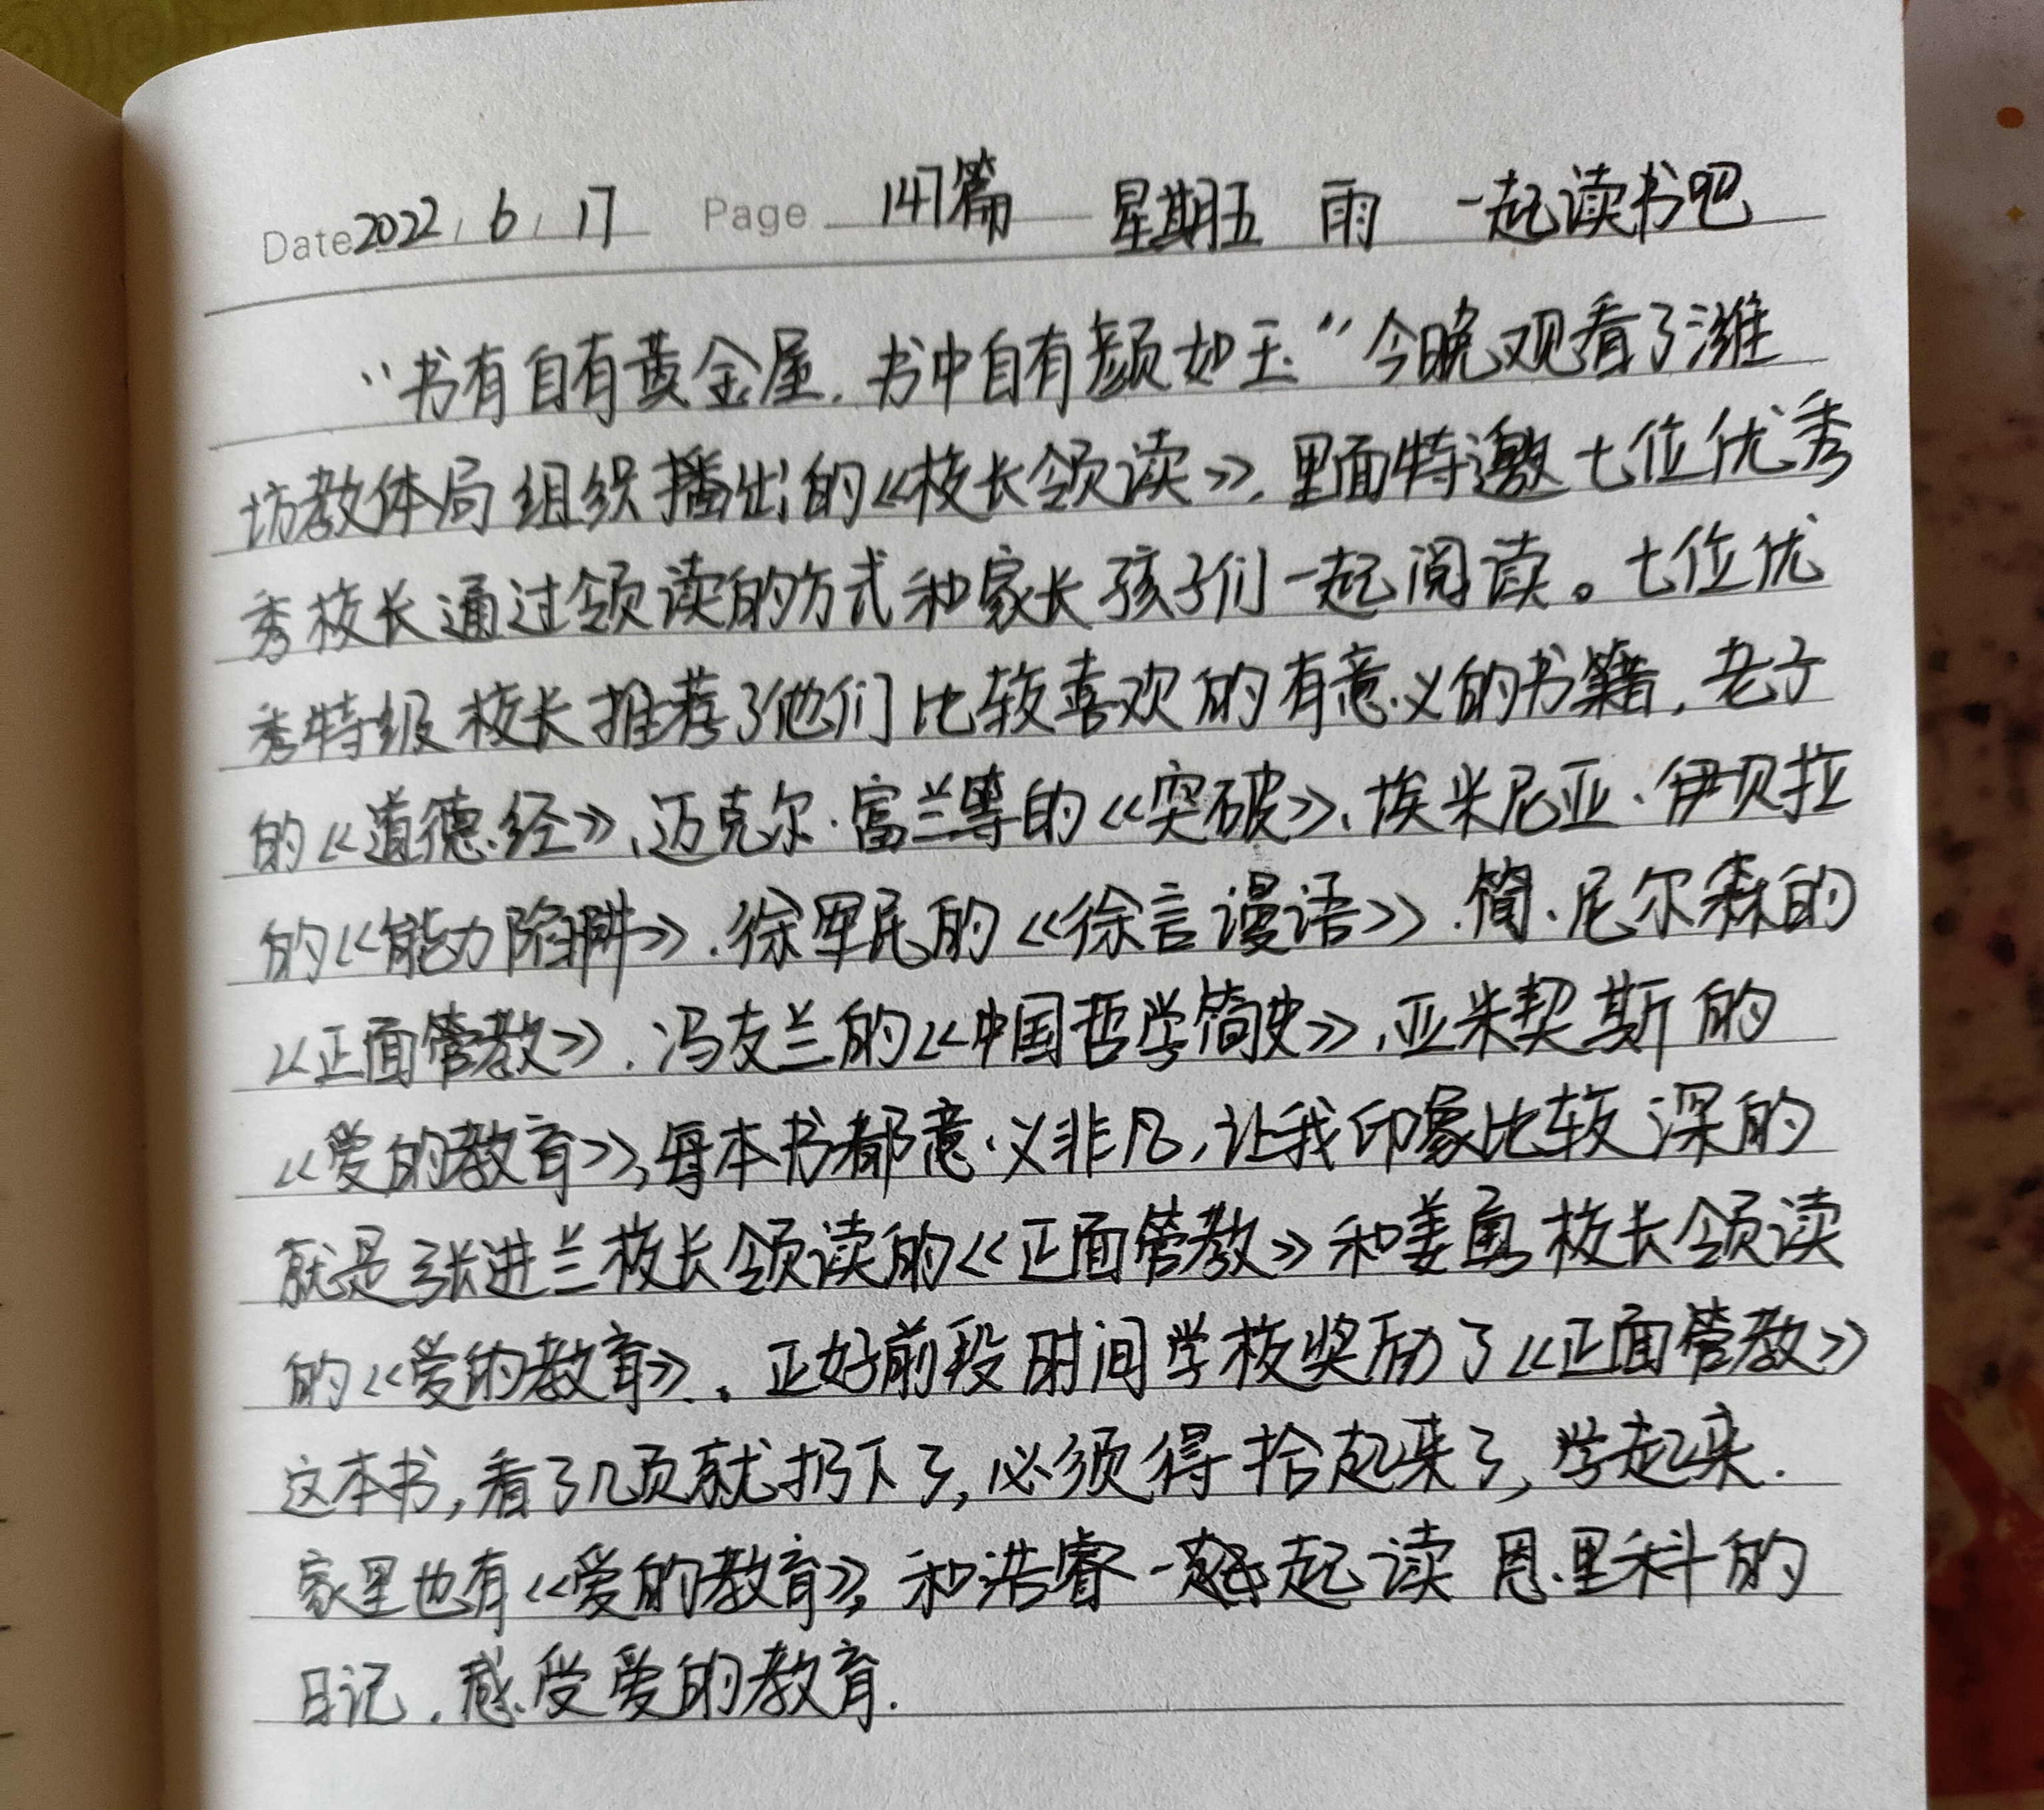 Date 2022.6.17 Page 147篇 星期五 雨 一起读书吧
“书有自有黄金屋,书中自有颜如玉”今晚观看了潍
坊教体局组织播出的《校长领读》,里面特邀七位优秀
秀校长通过领读的方式和家长孩子们一起阅读。七位优
秀特级校长推荐了他们比较喜欢的有意义的书籍,老子
的《道德经》、迈克尔·富兰等的《突破》、埃米尼亚·伊贝拉
的《能力陷阱》、徐军民的《徐言漫语》、简、尼尔森的
《正面管教》、冯友兰的《中国哲学简史》、亚米契斯的
《爱的教育》,每本书都意义非凡,让我印象比较深的
就是张进兰校长领读的《正面管教》和姜 校长领读
的《爱的教育》。正好前段时间学校奖励了《正面管教》
这本书,看了几页就扔下了,必须得拾起来了,学起来.
家里也有《爱的教育》,和浩睿一起读 恩里科的
日记,感受爱的教育.